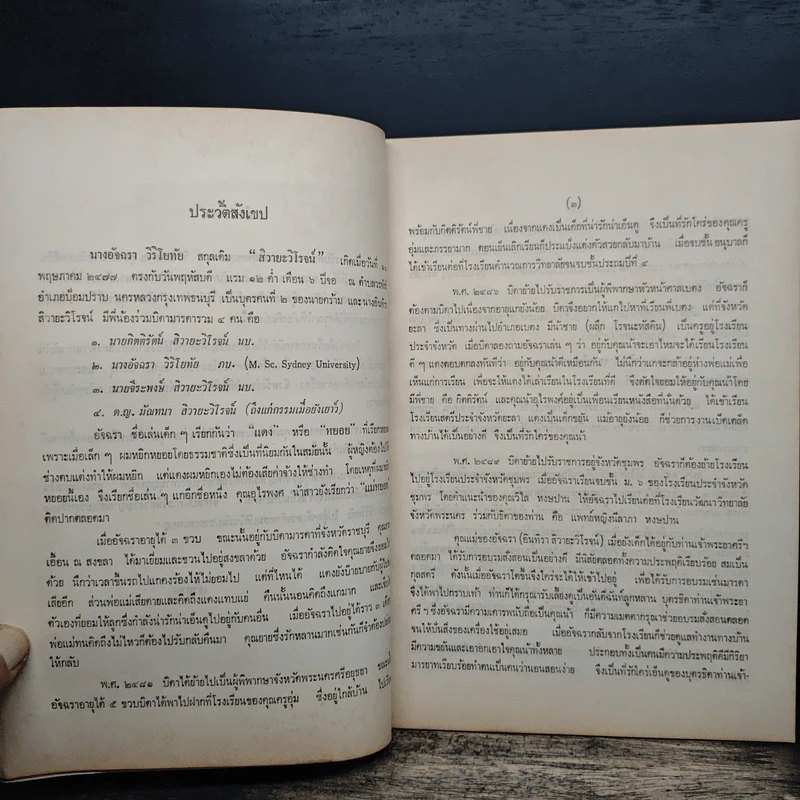 ประวัติสังเขป
นางอัจฉรา วิริโยทัย สกุลเดิม “สิวายะวิโรจน์” เกิดเมื่อวันที่
พฤษภาคม ๒๔๗๗ ตรงกับวันพฤหัสบดี แรม ๑๒ ค่ำ เดือน ๖ ปีจอ ณ ตำบล
อำเภอป้อมปราบ นครหลวงกรุงเทพธนบุรี เป็นบุตรคนที่ ๒ ของนายคร้าม และนาง
สิวายะวิโรจน์ มีพี่น้องร่วมบิดามารดารวม ๔ คน คือ
๑. นายกิตติรัตน์ สิวายะวิโรจน์ นบ.
๒. นางอัจฉรา วิริโยทัย ภบ. (M. Sc. Sydney University)
๓. นายจีระพงษ์ สิวายะวิโรจน์ นบ.
๔. ด.ญ. มัณฑนา สิวายะวิโรจน์ (ถึงแก่กรรมเมื่อยังเยาว์)
อัจฉรา ชื่อเล่นเด็ก ๆ เรียกกันว่า “แดง” หรือ “หยอย” ที่เรียก
เพราะเมื่อเล็ก ๆ ผมหยิกหยอยโดยธรรมชาติซึ่งเป็นที่นิยมกันในสมัยนั้น ผู้หญิงต้องไป
ช่างดบแต่งทำให้ผมหยิก แต่แดงผมหยิกเองไม่ต้องเสียค่าจ้างให้ช่างทำ โดยเหตุที่ผม
หยอยนี้เอง จึงเรียกชื่อเล่น ๆ แกอีกชื่อหนึ่ง คุณอุไรพงศ์ น้าสาวยังเรียกว่า “แม่หยอย”
ติดปากตลอดมา
เมื่ออัจฉราอายุได้ ๓ ขวบ ขณะนั้นอยู่กับบิดามารดาที่จังหวัดราชบุรี
เอื้อน ณ สงขลา ได้มาเยี่ยมและชวนไปอยู่สงขลาด้วย อัจฉรากำลังติดใจคุณยายจึงยอม
ด้วย นึกว่าเวลาขึ้นรถไปแกคงร้องไห้ไม่ยอมไป แต่ที่ไหนได้ แดงยังบ๊ายบาย
เสียอีก ส่วนพ่อแม่เสียดายและคิดถึงแดงแทบแย่ คืนนั้นนอนคิดถึงแกมาก และ
ตัวเองที่ยอมให้ลูกซึ่งกำลังน่ารักน่าเอ็นดูไปอยู่กับคนอื่น เมื่ออัจฉราไปอยู่ได้ราว
พ่อแม่ทนคิดถึงไม่ไหวก็ต้องไปรับกลับคืนมา คุณยายซึ่งรักหลานมากเช่นกันก็จำต้อง
ให้กลับ
พ.ศ. ๒๔๘๑ บิดาได้ย้ายไปเป็นผู้พิพากษาจังหวัดพระนครศรีอยุธยา
อัจฉราอายุได้ ๕ ขวบบิดาได้พาไปฝากที่โรงเรียนของคุณครูอุ่ม ซึ่งอยู่ใกล้บ้าน
(๑)
พร้อมกับกิตติรัตน์พี่ชาย เนื่องจากแดงเป็นเด็กที่น่ารักน่าเอ็นดู จึงเป็นที่รักใคร่ของคุณครู
อุ่มและภรรยามาก ตอนเย็นเลิกเรียนก็ประแป้งแต่งตัวสวยกลับมาบ้าน เมื่อจบชั้นอนุบาลก็
ได้เข้าเรียนต่อที่โรงเรียนคำนวณการวิทยาลัยจนจบชั้นประถมปีที่ ๔
พ.ศ. ๒๔๘๖ บิดาย้ายไปรับราชการเป็นผู้พิพากษาหัวหน้าศาลเบตง อัจฉราก็
ต้องตามบิดาไปเนื่องจากอายุแกยังน้อย บิดาจึงอยากให้แกไปหาที่เรียนที่เบตง แต่ที่จังหวัด
ยะลา ซึ่งเป็นทางผ่านไปอำเภอเบตง มีน้าชาย (ผลึก โรจนะหัสดิน) เป็นครูอยู่โรงเรียน
ประจำจังหวัด เมื่อบิดาลองถามอัจฉราเล่น ๆ ว่า อยู่กับคุณน้าจะเอาไหมจะได้เรียนโรงเรียน
ดี ๆ แดงตอบตกลงทันทีว่า อยู่กับคุณน้าดีเหมือนกัน ไม่นึกว่าแกจะกล้าอยู่ห่างพ่อแม่เพื่อ
เห็นแก่การเรียน เพื่อจะให้แดงได้เล่าเรียนในโรงเรียนที่ดี จึงตัดใจยอมให้อยู่กับคุณน้าโดย
มีพี่ชาย คือ กิตติรัตน์ และคุณน้าอุไรพงศ์อยู่เป็นเพื่อนเรียนหนังสือที่นั่นด้วย ได้เข้าเรียน
โรงเรียนสตรีประจำจังหวัดยะลา แดงเป็นเด็กขยัน แม้อายุยังน้อย ก็ช่วยการงานเบ็ดเตล็ด
ทางบ้านได้เป็นอย่างดี จึงเป็นที่รักใคร่ของคุณน้า
พ.ศ. ๒๔๘๙ บิดาย้ายไปรับราชการอยู่จังหวัดชุมพร อัจฉราก็ต้องย้ายโรงเรียน
ไปอยู่โรงเรียนประจำจังหวัดชุมพร เมื่ออัจฉราเรียนจบชั้น ม. ๖ ของโรงเรียนประจำจังหวัด
ชุมพร โดยคำแนะนำของคุณวิไล หงษปาน ให้อัจฉราไปเรียนต่อที่โรงเรียนวัฒนาวิทยาลัย
จังหวัดพระนคร ร่วมกับธิดาของท่าน คือ แพทย์หญิงนีลาภา หงษปาน
คุณแม่ของอัจฉรา (อินทิรา สิวายะวิโรจน์) เมื่อยังเด็กได้อยู่กับท่านเจ้าพระยาศรีฯ
ตลอดมา ได้รับการอบรมสั่งสอนเป็นอย่างดี มีนิสัยตลอดทั้งความประพฤติเรียบร้อย สมเป็น
กุลสตรี ดังนั้นเมื่ออัจฉราโตขึ้นจึงใคร่จะได้ให้เข้าไปอยู่ เพื่อได้รับการอบรมเช่นมารดา
จึงได้พาไปกราบเท้า ท่านก็ได้กรุณารับเลี้ยงดูเป็นอันดีฉันท์ลูกหลาน บุตรธิดาท่านเจ้าพระยา
ศรีฯ ซึ่งอัจฉรามีความเคารพนับถือเป็นคุณน้า ก็มีความเมตตากรุณาช่วยอบรมสั่งสอนตลอด
จนให้ปันสิ่งของเครื่องใช้อยู่เสมอ เมื่ออัจฉรากลับจากโรงเรียนก็ช่วยดูแลทำงานทางบ้าน
มีความขยันและเอาอกเอาใจคุณน้าทั้งหลาย ประกอบทั้งเป็นคนมีความประพฤติดีมีกิริยา
มารยาทเรียบร้อยทำตนเป็นคนว่านอนสอนง่าย จึงเป็นที่รักใคร่เอ็นดูของบุตรธิดาท่านเจ้า-